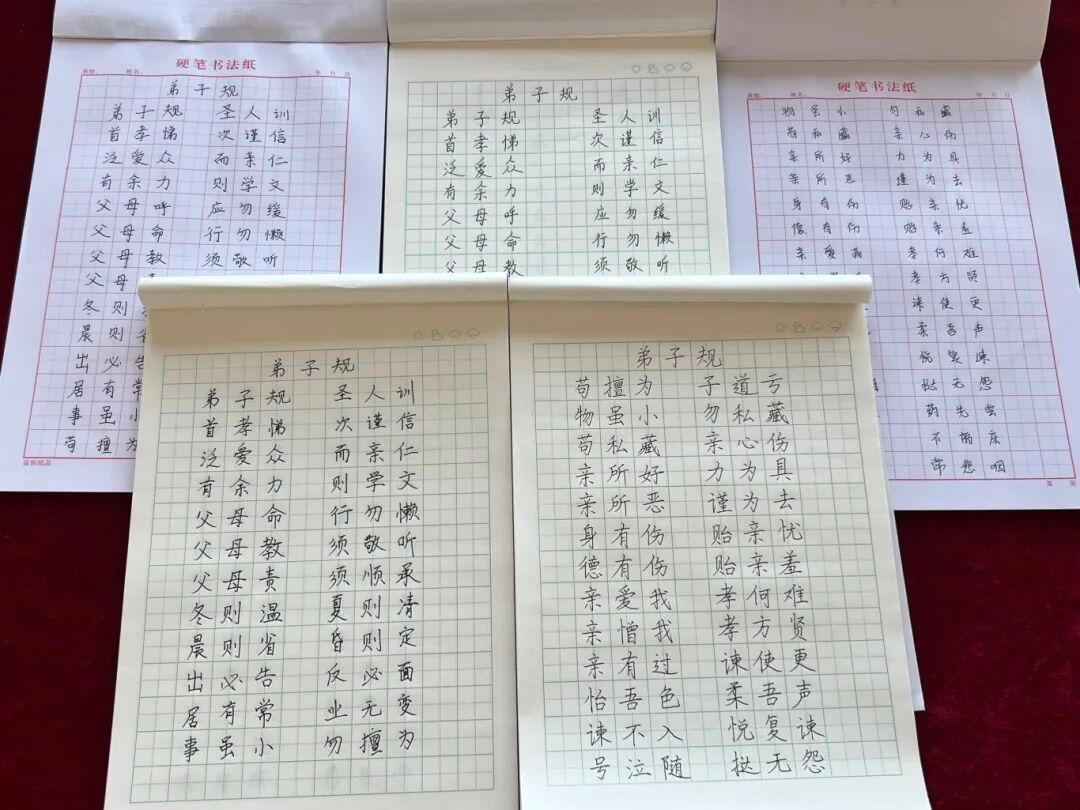 硬笔书法纸
班级: 姓名: 年 月 日
弟子规
弟子规 圣人训
首孝悌 次谨信
泛爱众 而亲仁
有余力 则学文
父母呼 应勿缓
父母命 行勿懒
父母教 须敬听
父母
冬则
晨则省
出必告
居有常
事虽小
苟擅为
弟子规
弟子规 圣人训
首孝悌 次谨信
泛爱众 而亲仁
有余力 则学文
父母呼 应勿缓
父母命 行勿懒
父母教 须敬听
硬笔书法纸
班级: 姓名: 年 月 日
物虽小 勿私藏
苟私藏 亲心伤
亲所好 力为具
亲所恶 谨为去
身有伤 贻亲忧
有伤 贻亲羞
亲爱我 孝何难
孝方贤
谏使更
柔吾声
悦复谏
挞无怨
药先尝
不离床
常悲咽
第 页
弟子规
弟子规 圣人训
首孝悌 次谨信
泛爱众 而亲仁
有余力 则学文
父母命 行勿懒
父母教 须敬听
父母责 须顺承
冬则温 夏则凊
晨则省 昏则定
出必告 反必面
居有常 业无变
事虽小 勿擅为
弟子规
苟擅为 子道亏
物虽小 勿私藏
苟私藏 亲心伤
亲所好 力为具
亲所恶 谨为去
身有伤 贻亲忧
德有伤 贻亲羞
亲爱我 孝何难
亲憎我 孝方贤
亲有过 谏使更
怡吾色 柔吾声
谏不入 悦复谏
号泣随 挞无怨